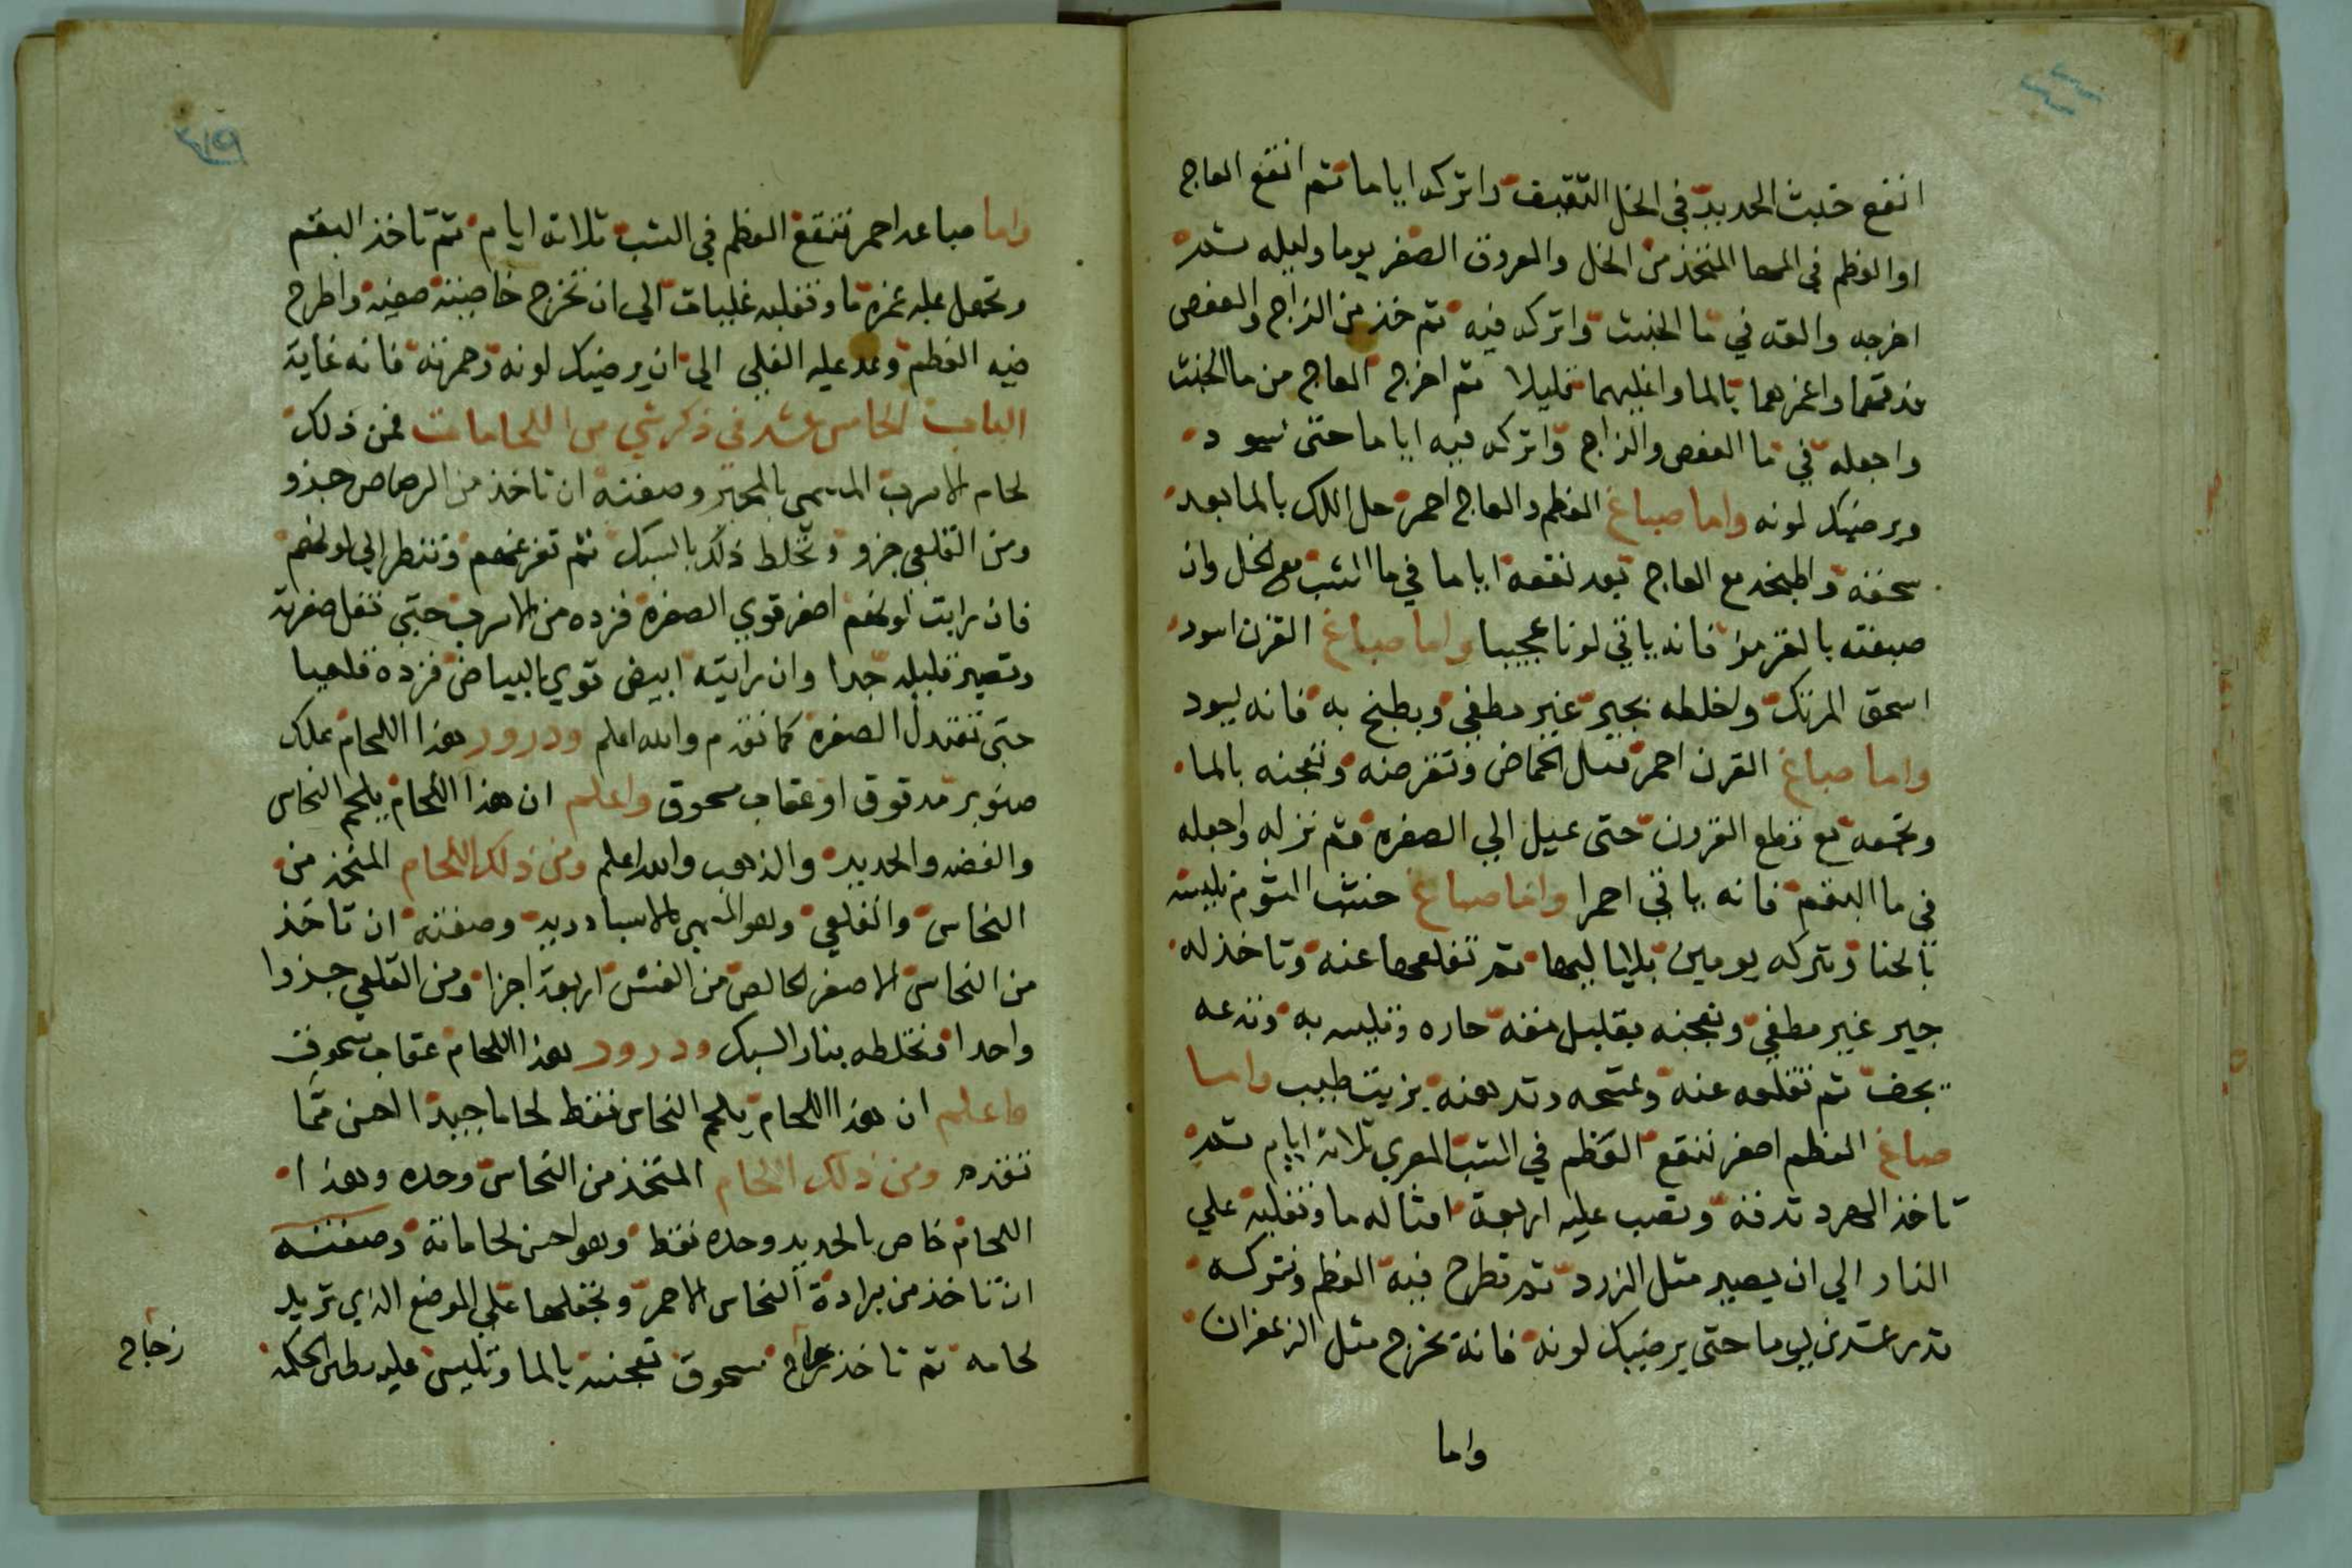 انقع خبث الحديد في الخل الثقيف واتركه اياما ثم انقع العاج
او العظم في الما المتخذ من الخل والعروق الصفر يوما وليله ثم
اخرجه والقه في ما الخبث واتركه فيه ثم خذ من الزاج والعفص
فدقهما واغمرهما بالما واغليهما قليلا ثم اخرج العاج من ما الخبث
واجعله في ما العفص والزاج واتركه فيه اياما حتى يسود
ويرضيك لونه واما صباغ العظم والعاج احمر حل اللك بالما بعد
سحقه واطبخه مع العاج بعد نقعه اياما في ما الشب مع الخل وان
صبغته بالقرمز فانه ياتي لونا عجيبا واما صباغ القرن اسود
اسحق المرتك واخلطه بجير غير مطفي ويطبخ به فانه يسود
واما صباغ القرن احمر الحماض وتقرضه وتعجنه بالما
مع قطع القرون حتى يميل الي الصفره ثم نزله واجعله
في ما البقم فانه ياتي احمرا واما صباغ
بالحنا وتتركه يومين بلياليها ثم تقلعها عنه وتاخذ له
جير غير مطفي وتعجنه بقليل حاره وتلبسه به وتدعه
يجف ثم تقلعه عنه وتمسحه وتدهنه بزيت طيب واما
صباغ العظم اصفر تنقع العظم في الشب المصري ثلاثة ايام ثم
تاخذ الهرد تدقه وتصب عليه اربعة امثاله ما وتغليه علي
النار الي ان يصير مثل الزرد ثم تطرح فيه العظم وتتركه
قدر عشرين يوما حتى يرضيك لونه فانه يخرج مثل الزعفران
واما
واما صباغه احمر تنقع العظم في الشب ثلاثة ايام ثم تاخذ البقم
وتجعل عليه غمره ما وتغليه غليات الي ان تخرج خاصيته واطرح
فيه العظم وعد عليه الغلي الي ان يرضيك لونه وحمرته فانه غاية
الباب الخامس عشر في ذكر شي من اللحامات فمن ذلك
لحام الاسرب المسمى وصفته ان تاخذ من الرصاص جزو
ومن القلعي جزو وتخلط ذلك بالسبك ثم تفرغهم وتنظر الي لونهم
فان رايت لونهم اصفر قوي الصفره فزده من الاسرب حتي تقل صفرته
وتصير قليله جدا وان رايته ابيض قوي البياض فزده قلعيا
حتى تعتدل الصفره كما تقدم والله اعلم ودرور هذا اللحام علك
صنوبر مدقوق او عقاب مسحوق واعلم ان هذا اللحام يلحم النحاس
والفضه والحديد والذهب والله اعلم ومن ذلك اللحام المتخذ من
النحاس والقلعي وهو المسمى وصفته ان تاخذ
من النحاس الاصفر الخالص من الغش اربعة اجزا ومن القلعي جزوا
واحدا وتخلطه بنار السبك ودرور هذا اللحام عقاب مسحوق
واعلم ان هذا اللحام يلحم النحاس فقط لحاما جيدا احسن مما
تقدم ومن ذلك اللحام المتخذ من النحاس وحده وهذا
اللحام خاص بالحديد وحده فقط وهو احسن لحاماته وصفته
ان تاخذ من برادة النحاس الاحمر وتجعلها علي الموضع الذي تريد
لحامه ثم تاخذ مسحوق تعجنه بالما وتلبس عليه بطين الحكمه
زجاج